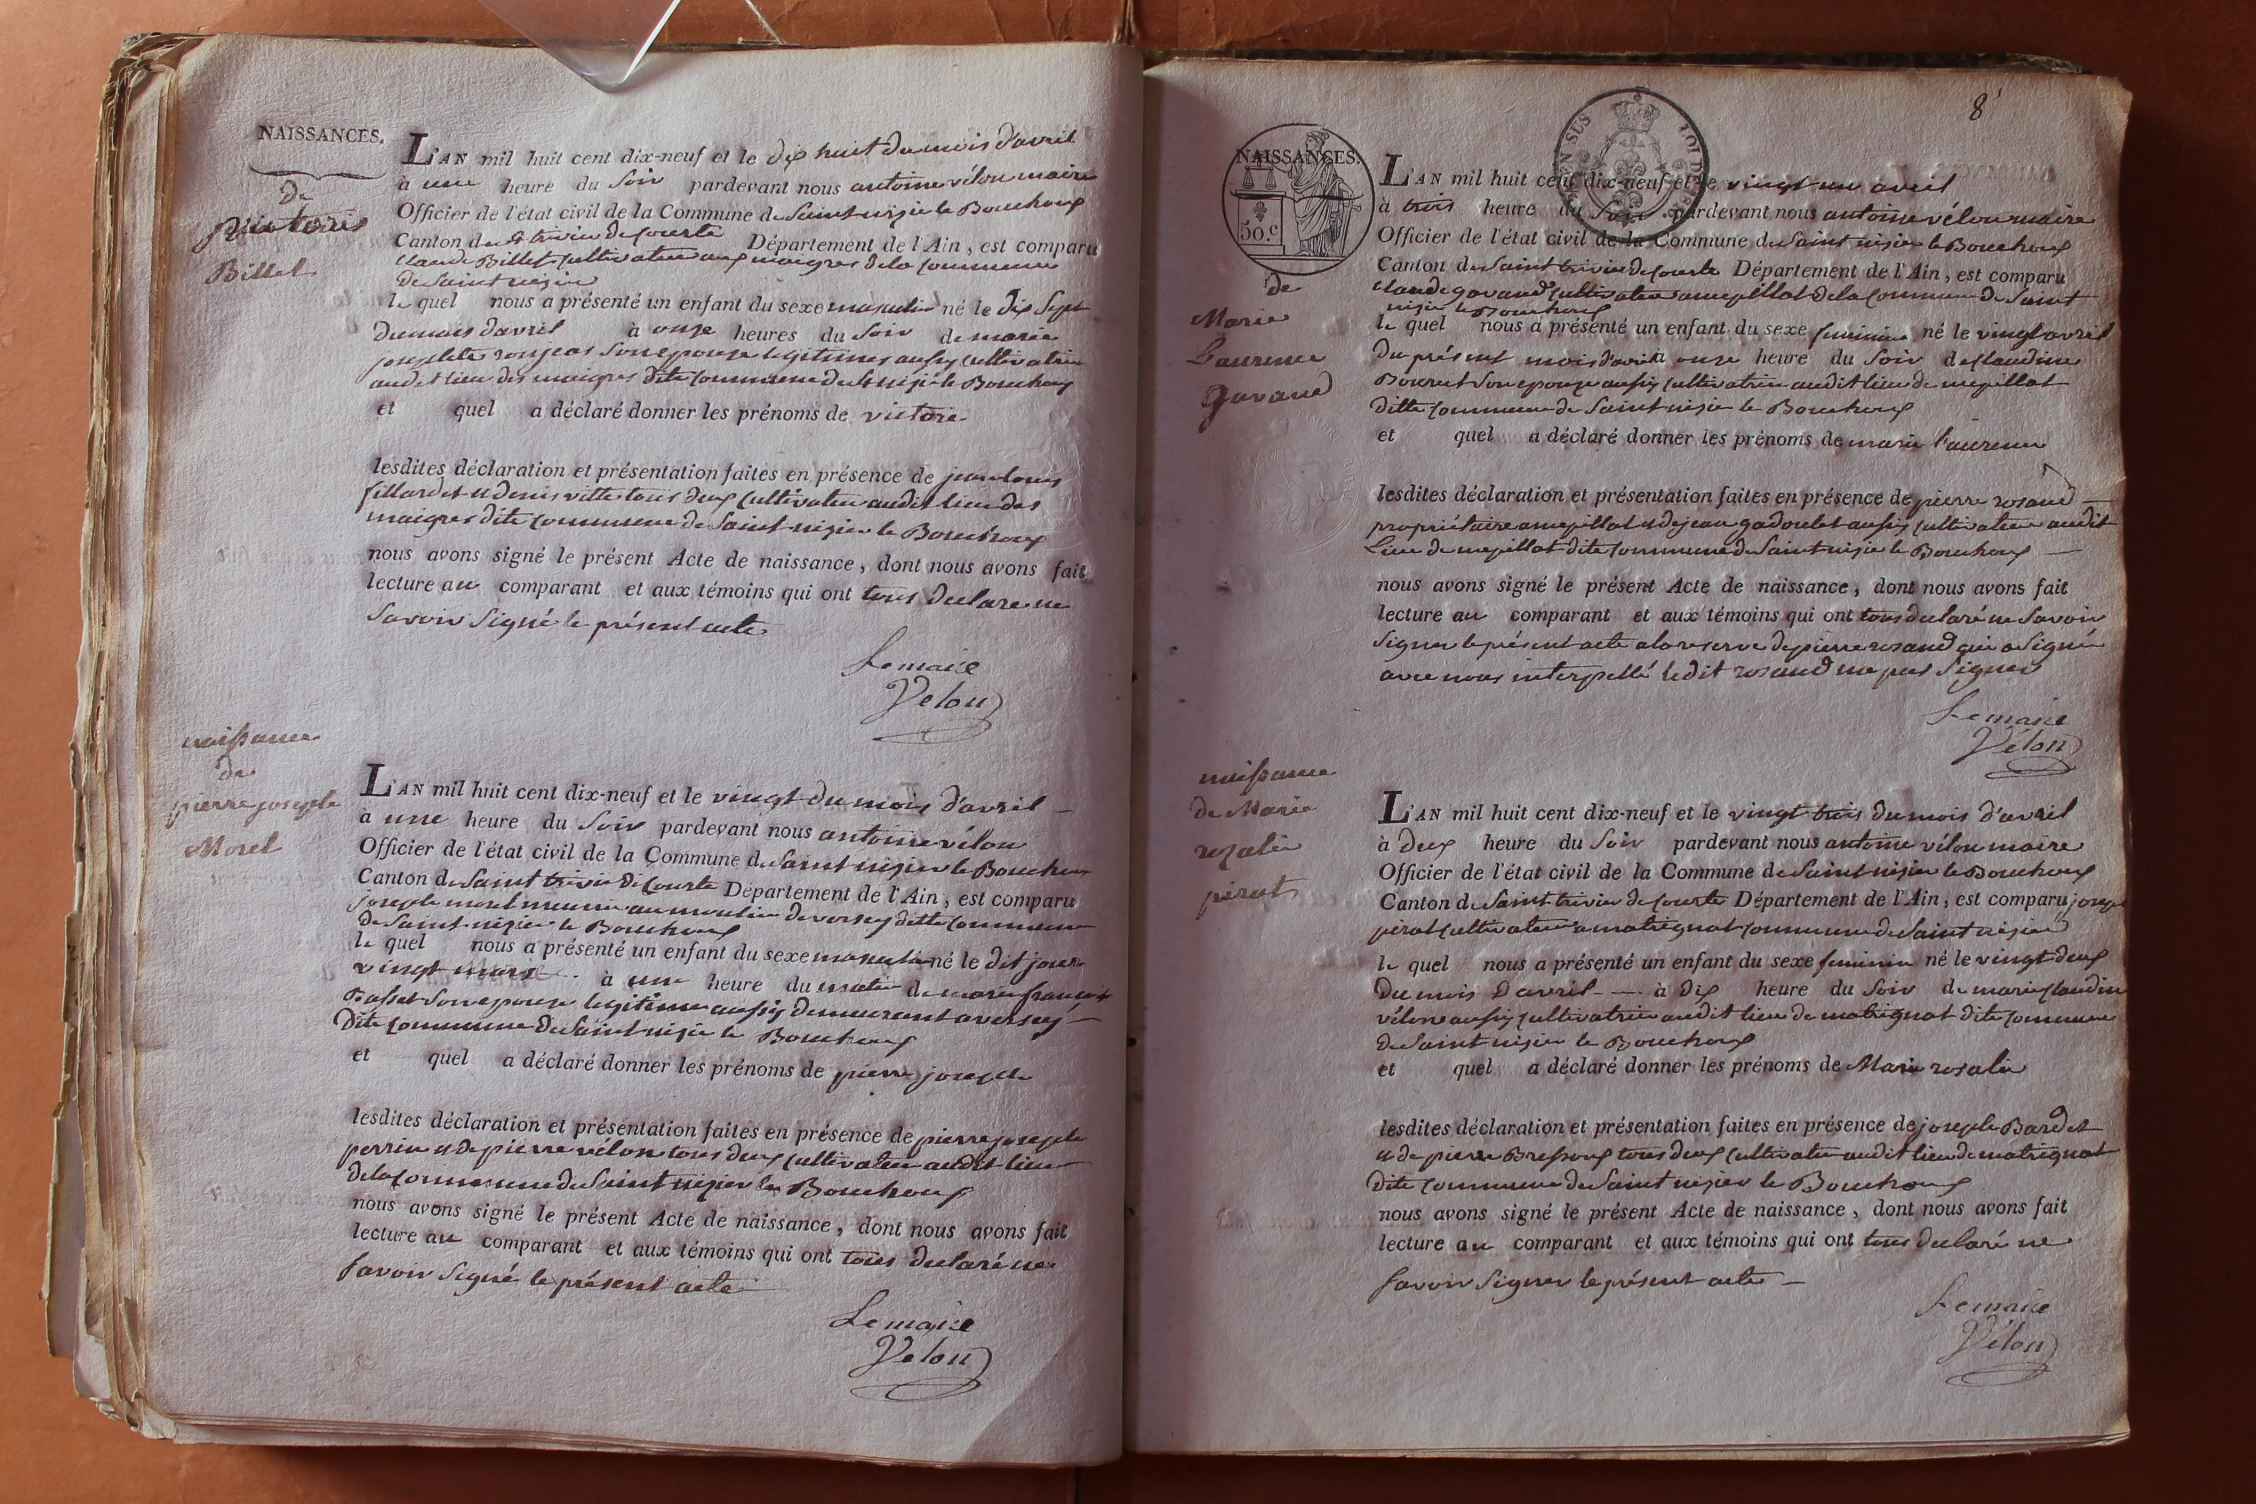 NAISSANCES.
de
Victoire
Billet
L'AN mil huit cent dix-neuf et le dix huit du mois d'avril
à une heure du soir pardevant nous antoine vélon maire
Officier de l'état civil de la Commune de Saint nizier le Bouchoux
Canton de St trivier de Courte Département de l'Ain, est comparu
Claude Billet cultivateur aux maigres de la commune
de Saint nizier
le quel nous a présenté un enfant du sexe masculin né le dix sept
du mois d'avril à onze heures du soir de marie
josephte son epouse legitime aussy cultivatrice
audit lieu des maigres dite commune de St nizié le Bouchoux
et quel a déclaré donner les prénoms de victoire
lesdites déclaration et présentation faites en présence de jean louis
fillardet et denis vitte tous deux cultivateur audit lieu des
maigres dite commune de Saint nizier le Bouchoux
nous avons signé le présent Acte de naissance, dont nous avons fait
lecture au comparant et aux témoins qui ont tous declare ne
savoir signé le présent acte
Le maire
Velon
naissance
de
pierre joseph
Morel
L'AN mil huit cent dix-neuf et le vingt du mois d'avril
à une heure du soir pardevant nous antoine vélon
Officier de l'état civil de la Commune de Saint nizier le Bouchoux
Canton de Saint trivier de Courte Département de l'Ain, est comparu
joseph morel meunier au moulin de versey dite commune
de Saint nizier le Bouchoux
le quel nous a présenté un enfant du sexe masculin né le dit jour
vingt mars à une heure du matin de marie françoise
Basset son epouse legitime aussy demeurant a versey
dite commune de Saint nizier le Bouchoux
et quel a déclaré donner les prénoms de pierre joseph
lesdites déclaration et présentation faites en présence de pierre joseph
perrin et de pierre vélon tous deux cultivateur audit lieu
de la commune de Saint nizier le Bouchoux
nous avons signé le présent Acte de naissance, dont nous avons fait
lecture au comparant et aux témoins qui ont tous declaré ne
savoir signé le présent acte
Le maire
Velon
8
NAISSANCES.
50.c
de
Marie
Laurence
gavand
L'AN mil huit cent dix-neuf et le vingt un avril
à trois heure du soir pardevant nous antoine vélon maire
Officier de l'état civil de la Commune de Saint nizier le Bouchoux
Canton de Saint trivier de Courte Département de l'Ain, est comparu
Claude gavand cultivateur a mepillat de la commune de Saint
nizier le Bouchoux
le quel nous a présenté un enfant du sexe feminin né le vingt avril
du présent mois d'avril à onze heure du soir de Claudine
Bouvet son epouze aussy cultivatrice audit lieu de mepillat
dite commune de Saint nizier le Bouchoux
et quel a déclaré donner les prénoms de marie laurence
lesdites déclaration et présentation faites en présence de pierre rosand
propriétaire a mepillat et de jean gadoulet aussy cultivateur audit
Lieu de mepillat dite commune de Saint nizier le Bouchoux
nous avons signé le présent Acte de naissance, dont nous avons fait
lecture au comparant et aux témoins qui ont tous declaré ne savoir
signer le présent acte a la reserve de pierre rosand qui a signé
avec nous interpellé ledit rosand ne peut signer
Le maire
Vélon
naissance
de Marie
rozalie
pirat
L'AN mil huit cent dix-neuf et le vingt trois du mois d'avril
à deux heure du soir pardevant nous antoine vélon maire
Officier de l'état civil de la Commune de Saint nizier le Bouchoux
Canton de Saint trivier de Courte Département de l'Ain, est comparu joseph
pirat cultivateur a matrignat commune de Saint nizier
le quel nous a présenté un enfant du sexe feminin né le vingt deux
du mois d'avril à dix heure du soir de marie claudine
vélon aussy cultivatrice audit lieu de matrignat dite commune
de Saint nizier le Bouchoux
et quel a déclaré donner les prénoms de Marie rosalie
lesdites déclaration et présentation faites en présence de joseph Bardet
et de pierre Bressoux tous deux cultivateur audit lieu de matrignat
dite commune de Saint nizier le Bouchoux
nous avons signé le présent Acte de naissance, dont nous avons fait
lecture au comparant et aux témoins qui ont tous declaré ne
savoir signer le présent acte
Le maire
Vélon